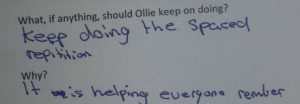 What, if anything, should Ollie keep on doing?
Keep doing the spaced
repitition
Why?
It is helping everyone rember